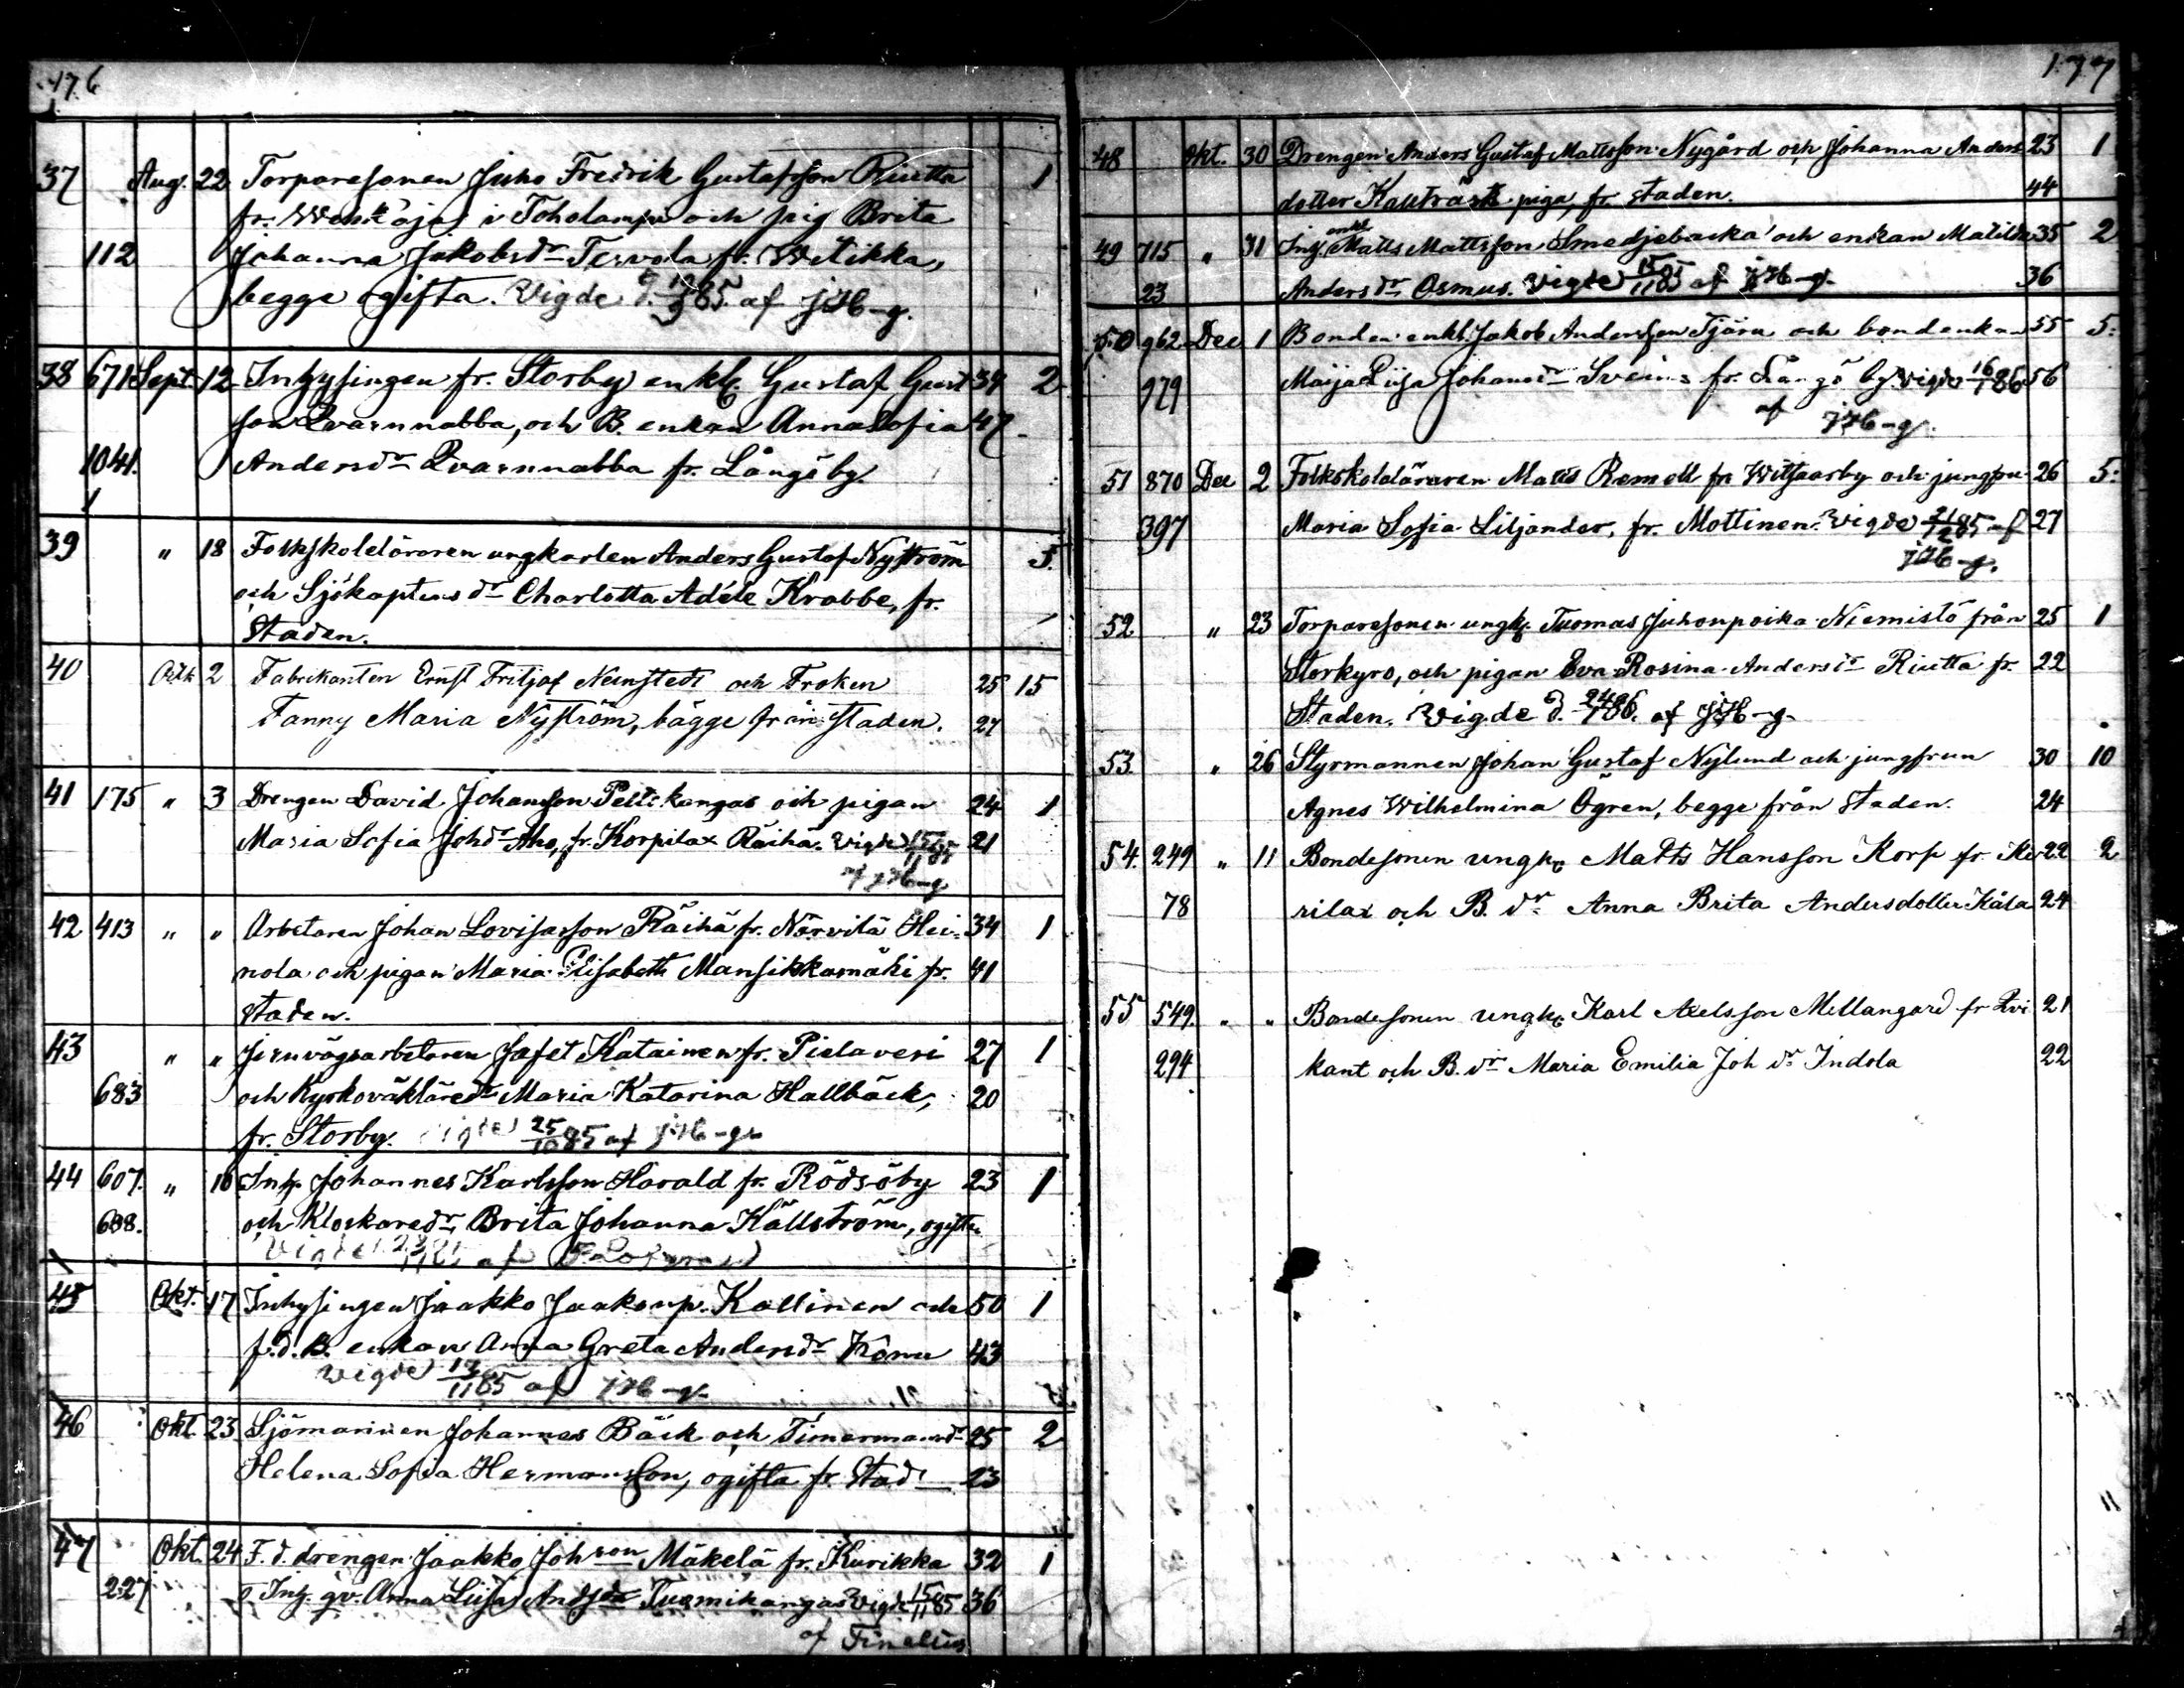 176
37 Aug. 22 Torparesonen Juho Fredrik Gustafsson Riutta 1
fr. i Toholampi och pig Brita
112 Johanna Jakobsdr Tervola fr. Witikka,
begge ogifta. Vigde d. 85 af
38 671 Sept. 12 Inhysingen fr. Storby enkl. Gustaf Gust 39 2
son Qvarnnabba, och B. enkan Anna Sofia 47
1041. Andersdr Qvarnnabba fr. Långö by.
39 " 18 Folkskoleläraren ungkarlen Anders Gustaf Nyström 5.
och Sjökaptens dr Charlotta Adéle Krabbe, fr.
Staden.
40 Okt. 2 Fabrikanten Ernst Fritjof och Froken 25 15
Fanny Maria Nyström, bägge från staden. 27
41 175 " 3 Drengen David Johansson Peltikangas och pigan 24 1
Maria Sofia Johdr Aho, fr. Korpilax Räihä. Vigde 15/11 85 21
af
42 413 " " Arbetaren Johan Lovisasson Räihä fr. Närvilä Hei- 34 1
nola och pigan Maria Elisabeth Mansikkamäki fr. 41
staden.
43 " " Jernvägsarbetaren Jafet Katainen fr. Pielavesi 27 1
683 och Kyrkoväktäredr Maria Katarina Hallbäck, 20
fr. Storby. Vigde 25/10 85 af
44 607. " 10 Inh. Johannes Karlsson Harald fr. Rödsöby 23 1
698. och Klockaredr Brita Johanna Källström, ogifta
Vigde af
45 Okt. 17 Inhysingen Jaakko Jaakonp. Kallinen och 50 1
f.d. B. enkan Anna Greta Andersdr 43
Vigde 85 af
46 Okt. 23 Sjömannen Johannes Bäck och Timermansdr 25 2
Helena Sofia Hermansson, ogifta fr. Stad 23
47 Okt. 24 F. d. drengen Jaakko Johson Mäkelä fr. Kurikka 32 1
227 o Inh. qv. Anna Liisa Andsdr Tuomikangas Vigde 15/11 85 36
af Finelius
177
48 Okt. 30 Drengen Anders Gustaf Mattsson Nygård och Johanna Anders 23 1
dotter Kaltträsk piga, fr. staden. 44
enkl
49 715 " 31 Inh. Matts Mattsson Smedjebacka och enkan Matilda 35 2
23 Andersdr Osmus. Vigde 15/11 85 af 36
50 962 Dec 1 Bonden enkl. Jakob Andersson Tjäru och bondenkan 55 5.
979 Maija Liisa Johansdr Sveins fr. Långö by. Vigde 16/1 86 56
af
51 870 Dec 2 Folkskoleläraren Matts Remell fr. Wittsarby och jungfru 26 5.
397 Maria Sofia Liljander, fr. Mottinen. Vigde 21/12 85 af 27
52 " 23 Torparesonen ungk. Tuomas Juhonpoika Niemistö från 25 1
Storkyro, och pigan Eva Rosina Andersdr Riutta fr. 22
Staden. Vigde d. 24/1 86. af
53. " 26 Styrmannen Johan Gustaf Nylund och jungfrun 30 10
Agnes Wilhelmina Ögren, begge från staden. 24
54. 249 " 11 Bondesonen ungk. Matts Hansson Korp fr. Ki- 22 2
78 rilax och B. dr Anna Brita Andersdotter Kåla 24
55 549. " " Bondesonen ungk. Karl Axelsson Mellangård fr Qvi 21
294 kant och B. dr Maria Emilia Joh dr Indola 22